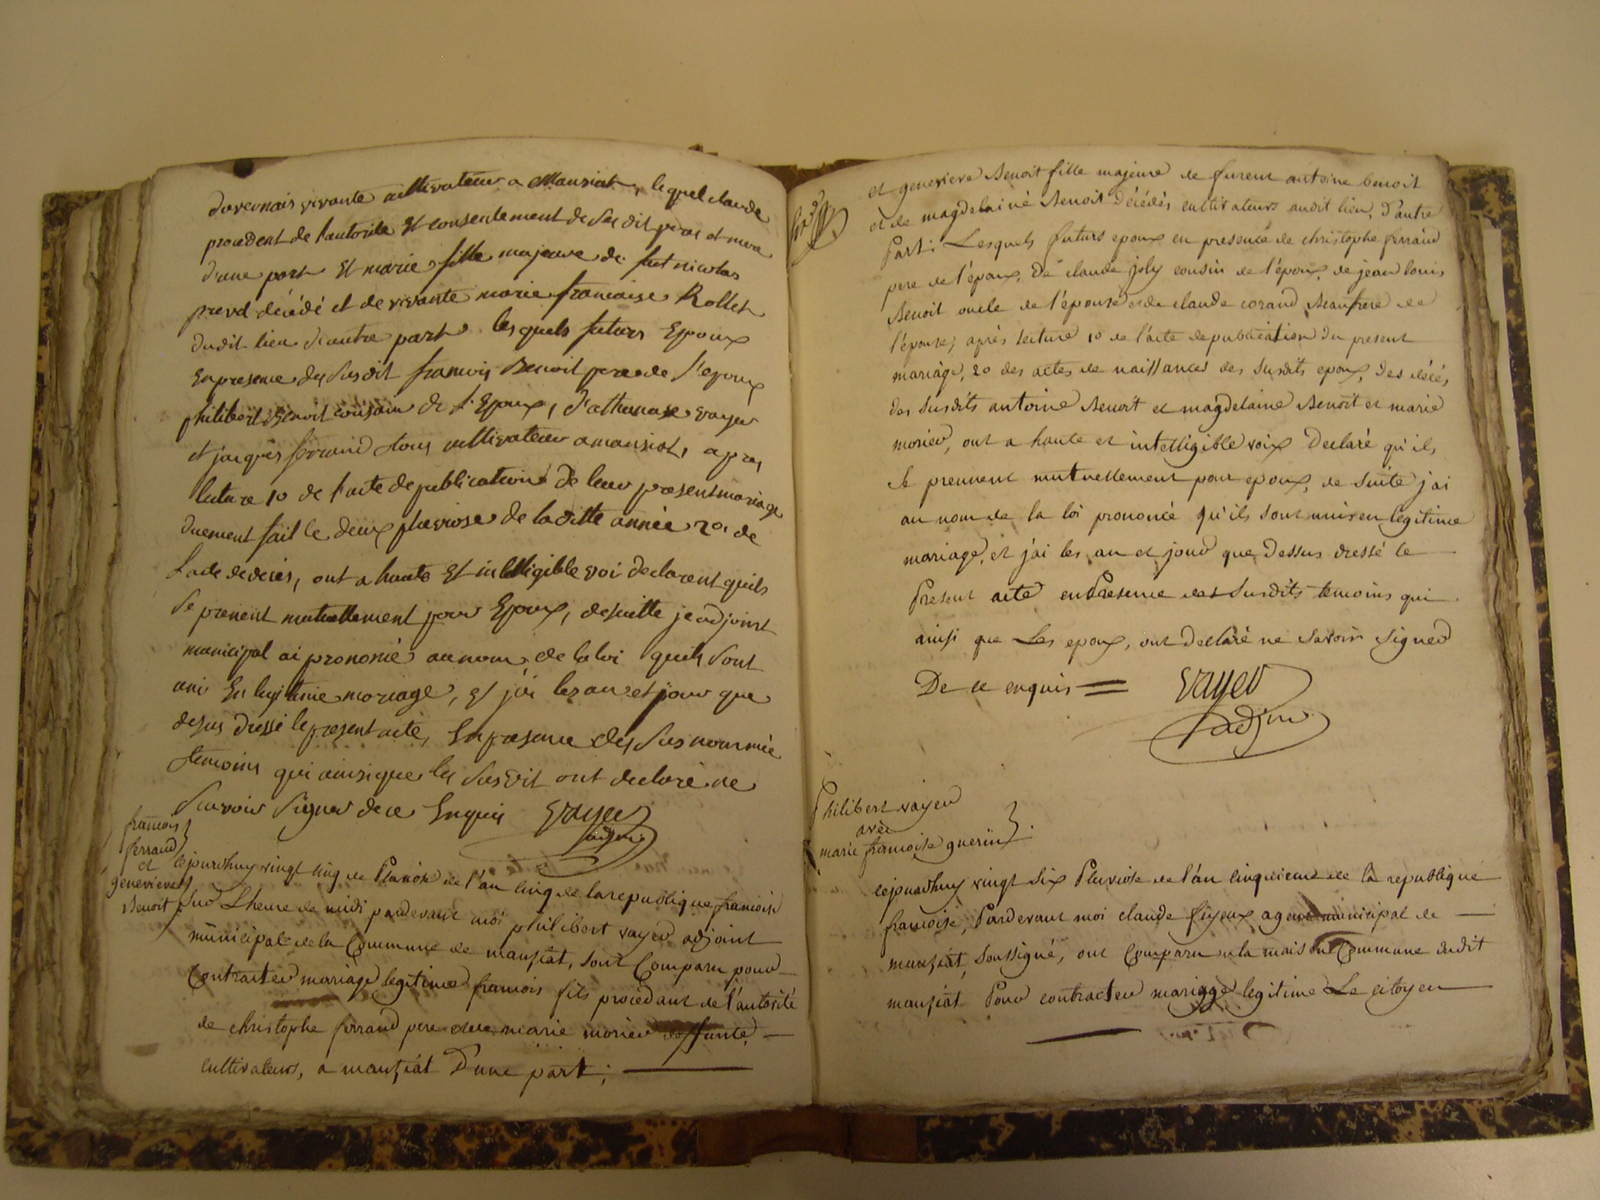 duvernais vivante cultivateur a Manziat, lequel claude
procedent de l'autorité Et consentement de ses dit peres et mere
d'une part Et marie fille majeure de fut nicolas
prevel décédé et de vivante marie francoise Rollet
dudit lieu d'autre part lesquels futurs Epoux
En presence des susdit francois Benoit pere de l'epoux
philibert Benoit cousain de l'Epoux, d'athanase vayer
et jacques ferrand tous cultivateur a mansiat, apres
lecture 1o de l'acte de publication de leur present mariage
duement fait le deux pluviose de la ditte année 2o de
l'acte de deces, ont a haute Et intelligible voi declarent quils
se prenent mutuellement pour Epoux, desuitte je adjoint
municipal ai prononcé au nom de la loi quils sont
unis En legitime mariage, Et j'ai les an et jour que
desus dressé le present acte, En presence des sus nommée
temoins qui ainsi que les susdit ont declaré ne
scavoir signer de ce Enquis vayer
adjoint
francois
ferraud
et
genevieve
Benoit
cejourdhuy vingt cinq de Pluviose de l'an cinq de la republique francoise
sur L'heure de midi pardevant moi philibert vayer adjoint
municipal de la Commune de manziat, sont Comparu pour
Contracter mariage legitime francois fils procedant de l'autorité
de christophe ferraud pere et de marie morier deffunte,
cultivateurs, a manziat D'une part;
et genevieve Benoit fille majeure de furent antoine benoit
et de magdelaine Benoit Décédés cultivateurs audit lieu, d'autre
Part: Lesquels futurs epoux en presence de christophe ferraud
pere de l'epoux, De claude joly cousin de l'époux, de jean louis
Benoit oncle de l'épouse et de claude corand Beaufrere de
l'épouse; après lecture 1o de l'acte de publication du present
mariage, 2o des actes de naissances des susdits epoux, des décés,
des susdits antoine Benoit et magdelaine Benoit et marie
morier, ont a haute et intelligible voix Declaré qu'ils
se prennent mutuellement pour epoux, de suite j'ai
au nom de la loi prononcé qu'ils sont unis en legitime
mariage, et j'ai les an et jour que Dessus dressé le
Present acte en Presence des susdits temoins qui
ainsi que Les epoux, ont declaré ne savoir signer
De ce enquis = vayer
adjoint
Philibert vayer
avec
marie francoise guerin
cejourdhuy vingt six Pluviose de l'an cinquieme de la republique
francoise, Pardevant moi claude agent municipal de
manziat, soussigné, ont Comparu en la maison Commune dudit
manziat Pour contracter mariage legitime Le citoyen